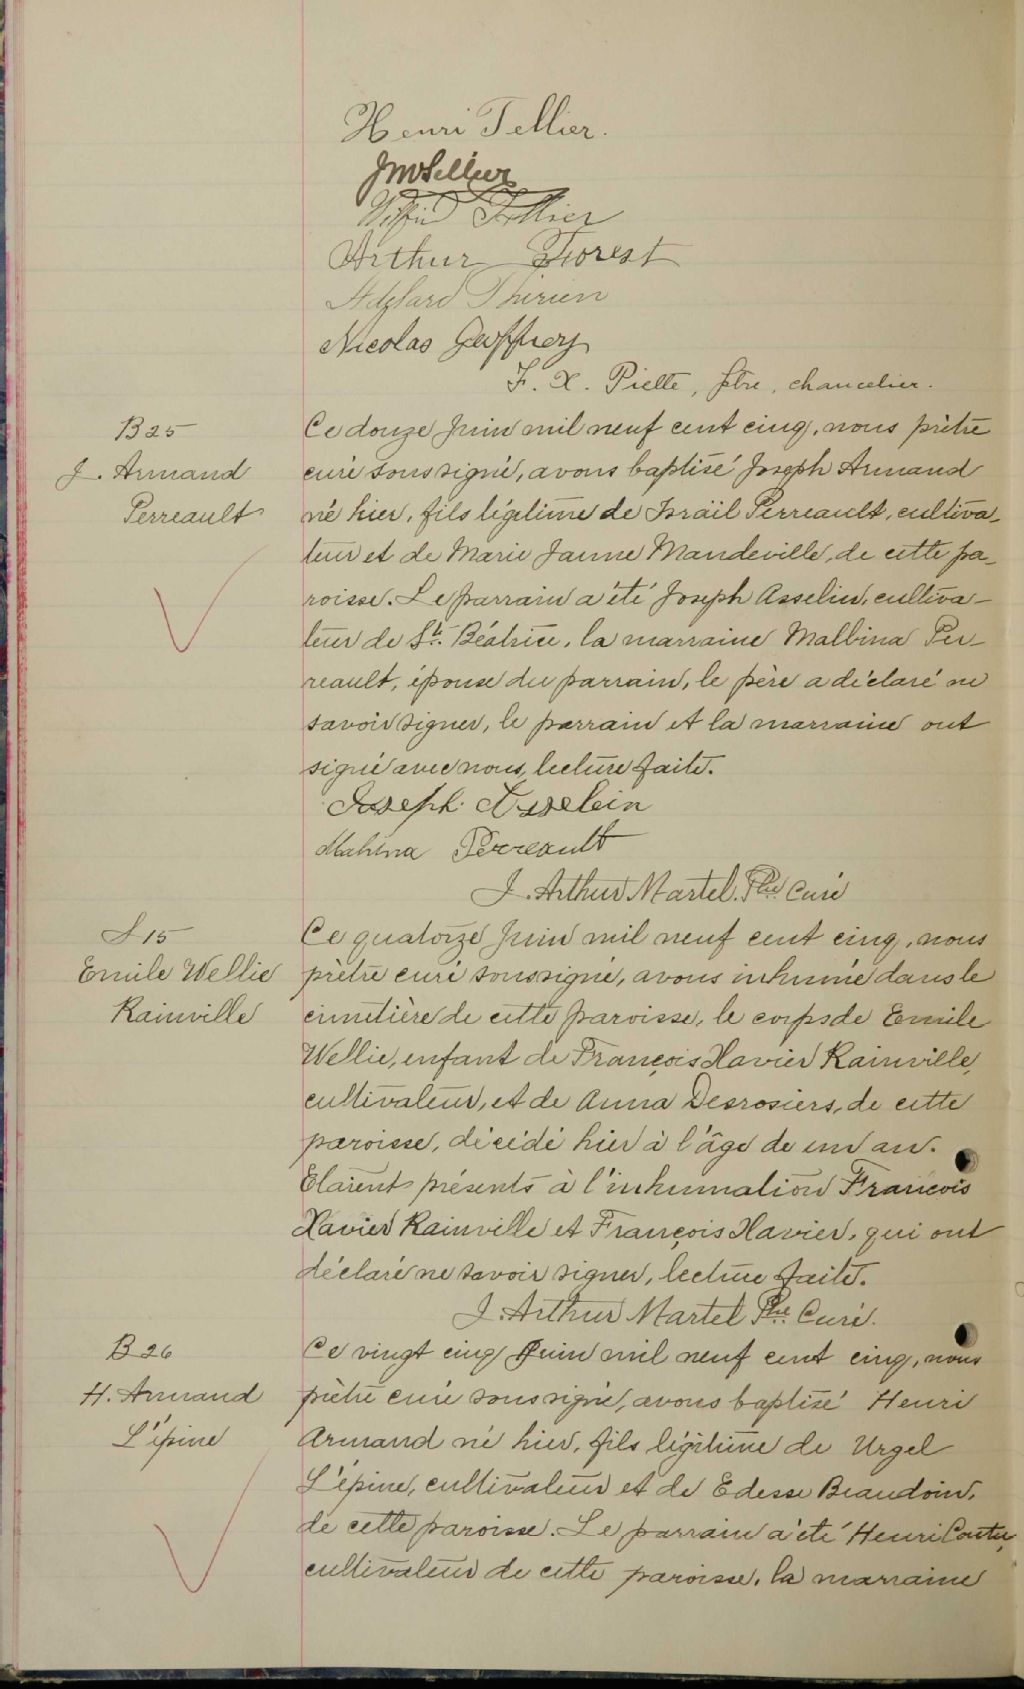 Henri Tellier.
Wilfrid Tellier
Arthur Forest
Adélard Thérien
Nicolas Geoffroy
F. X. Piette, ptre, chancelier.
B 25
J. Armand
Perreault
Ce douze Juin mil neuf cent cinq, nous prêtre
curé soussigné, avons baptisé Joseph Armand
né hier, fils légitime de Israïl Perreault, cultiva-
teur et de Marie Jeanne Mandeville, de cette pa-
roisse. Le parrain a été Joseph Asselin, cultiva-
teur de Ste. Béatrice, la marraine Malbina Per-
reault, épouse du parrain, le père a déclaré ne
savoir signer, le parrain et la marraine ont
signé avec nous, lecture faite.
Joseph Asselein
Perreault
J. Arthur Martel. Ptre Curé
S 15
Emile Wellie
Rainville
Ce quatorze Juin mil neuf cent cinq, nous
prêtre curé soussigné, avons inhumé dans le
cimetière de cette paroisse, le corps de Emile
Wellie, enfant de François Xavier Rainville,
cultivateur, et de Anna Desrosiers, de cette
paroisse, décédé hier à l'âge de un an.
Etaient présents à l'inhumation François
Xavier Rainville et François Xavier, qui ont
déclaré ne savoir signer, lecture faite.
J. Arthur Martel Ptre Curé.
B 26
H. Armand
L'épine
Ce vingt cinq Juin mil neuf cent cinq, nous
prêtre curé soussigné, avons baptisé Henri
Armand né hier, fils légitime de Urgel
L'épine, cultivateur et de Edesse Beaudoin,
de cette paroisse. Le parrain a été Henri Coutu,
cultivateur de cette paroisse, la marraine